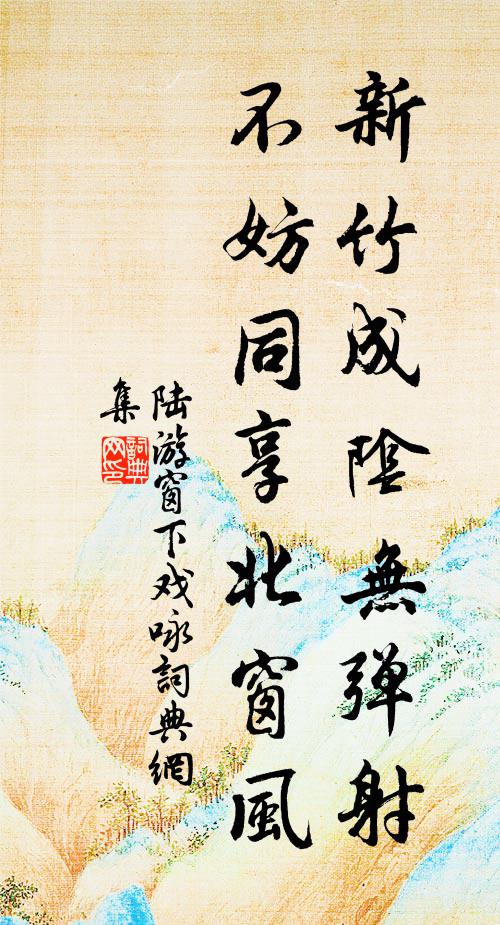 新竹成陰無弹射
不妨同享北窗風
陆游窗下戏咏詞典網
集
詞典网印